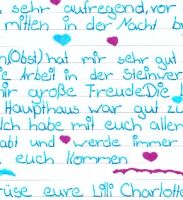 sehr aufregend, vor
mitten in der Nacht
(Obst) hat mir sehr gut
Arbeit in der Steinwer
mir große Freude Die
Haupthaus war gut zu
Ich habe mit euch aller
abt und werde immer
euch kommen
eure Lilli Charlotte